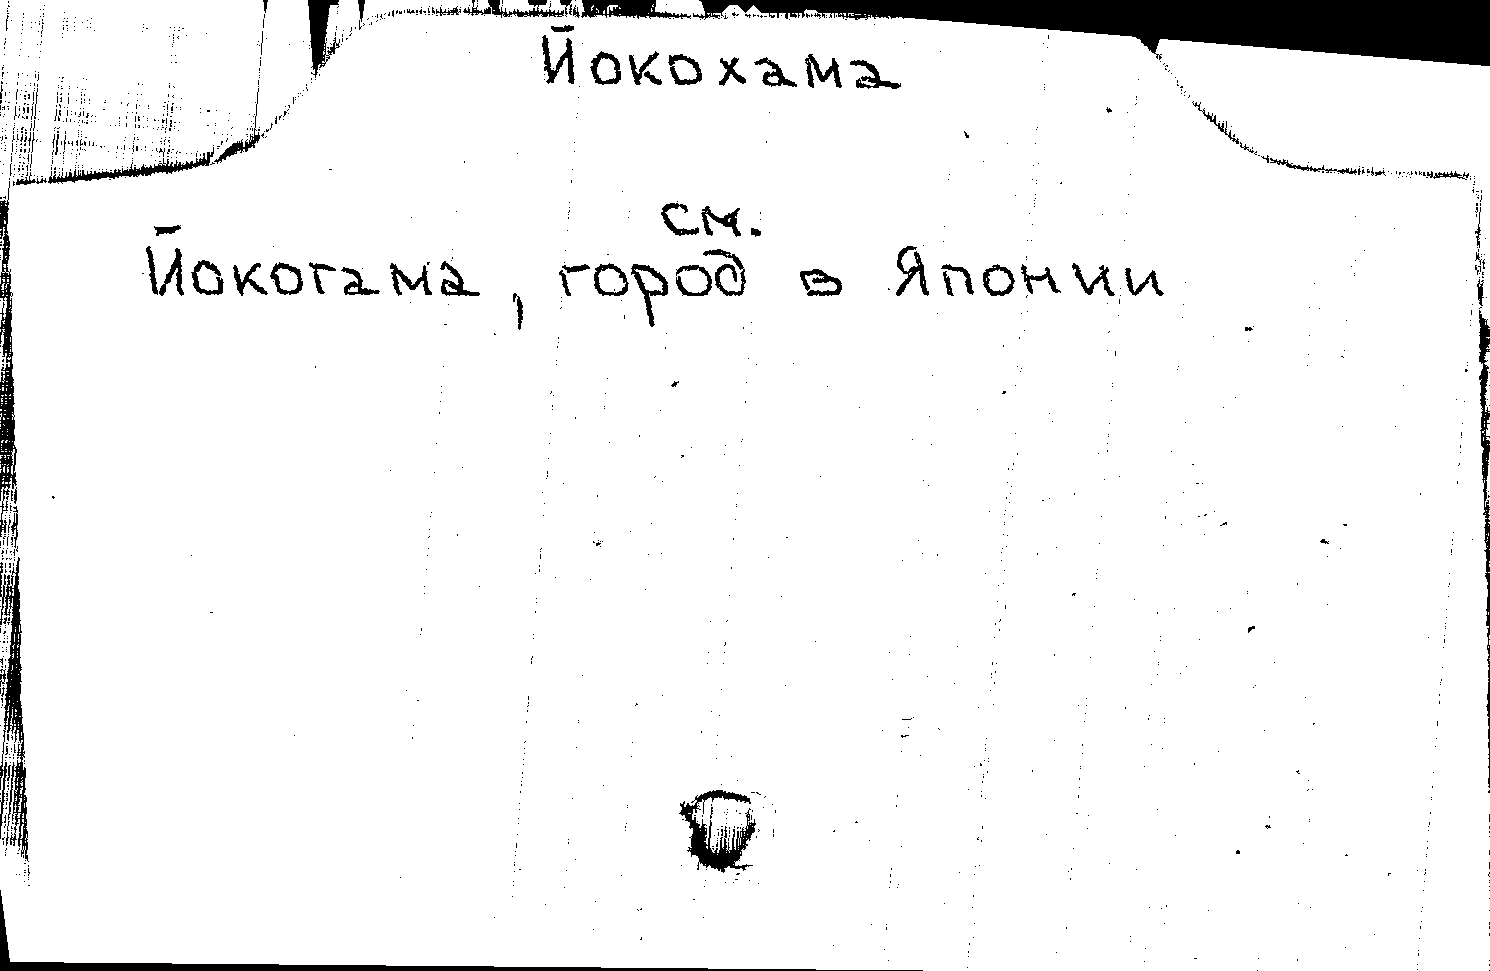 Йокохама
см.
Йокогама, город в Японии